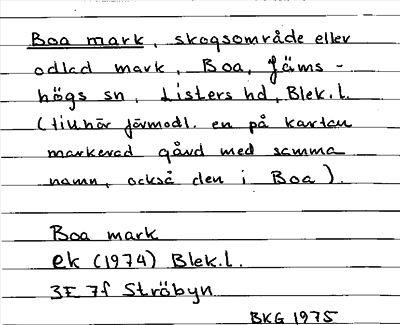 Boa mark, skogsområde eller
odlad mark, Boa, Jäms-
högs sn, Listers hd, Blek.l.
(tillhör förmodl. en på kartan
markerad gård med samma
namn, också den i Boa).
Boa mark
ek (1974) Blek.l.
3E 7f Ströbyn
BKG 1975